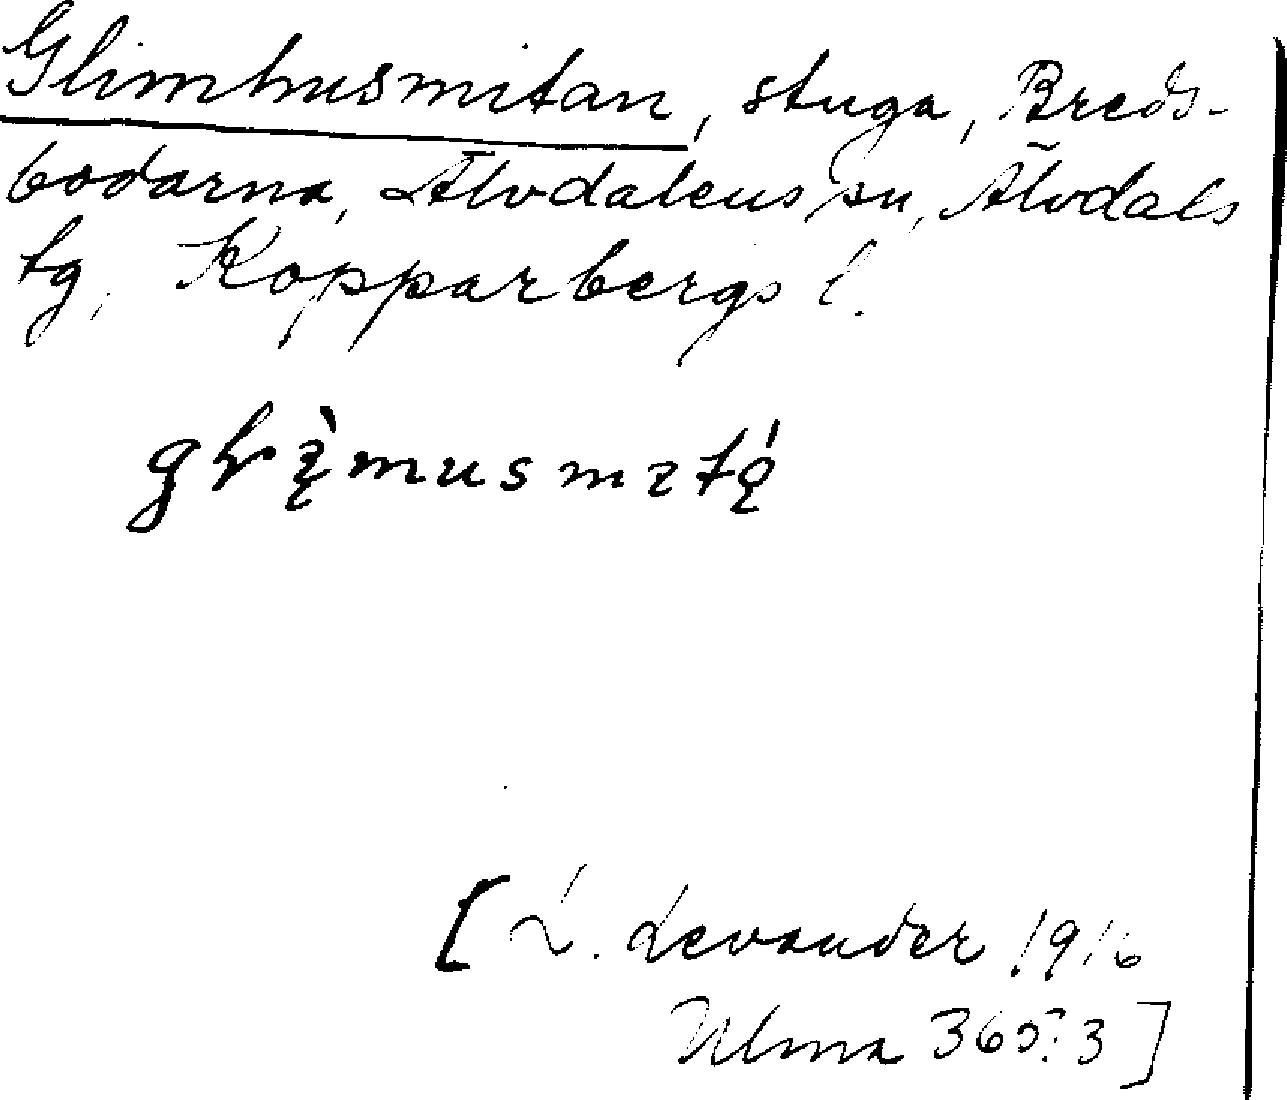 Glimhusmitan, stuga, Breds-
bodarna, Älvdalens sn, Älvdals
tg, Kopparbergs l.
[L. Levander 1916
Ulma 365:3]